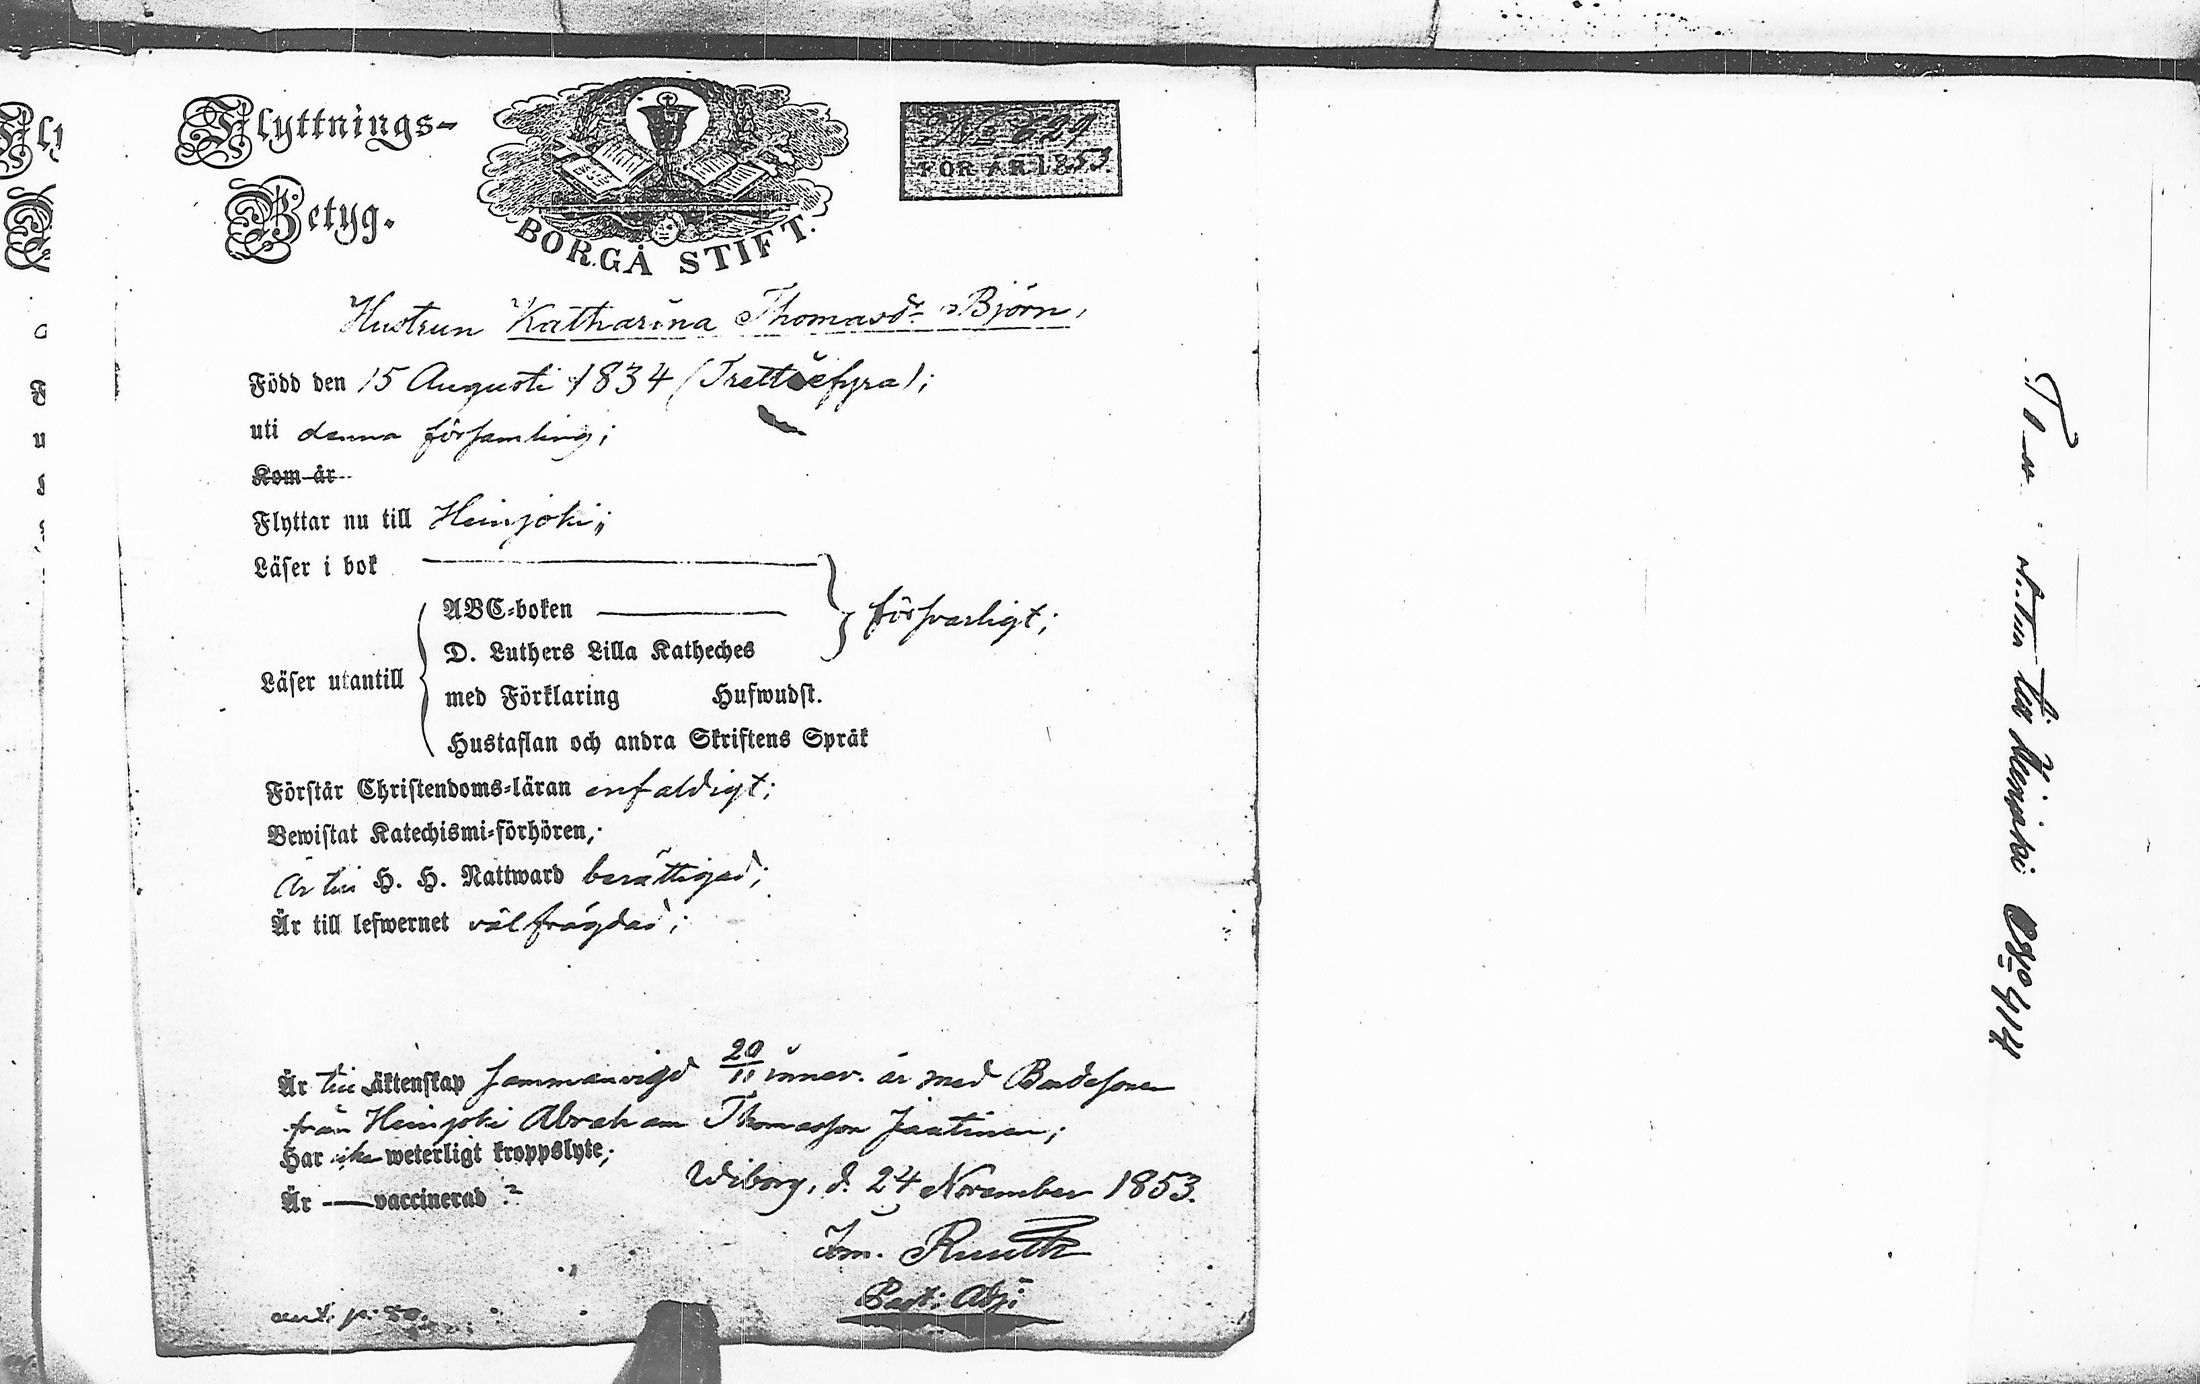 Flyttnings-
Betyg.
BORGÅ STIFT.
No 829
FÖR ÅR 1853.
Hustrun Katharina Thomasdr Björn,
Född den 15 Augusti 1834 (Trettiofyra);
uti denna församling;
Kom år
Flyttar nu till Heinjoki;
Läser i bok
ABC-boken
försvarligt;
D. Luthers Lilla Katheches
Läser utantill
med Förklaring Hufwudst.
Hustaflan och andra Skriftens Språk
Förstår Christendoms-läran enfaldigt;
Bewistat Katechismi-förhören,
Är till H. H. Nattward berättigad;
Är till lefwernet välfrägdad;
Är till äktenskap sammanvigd 20/11 innev. år med Bondesonen
från Heinjoki Abraham Thomasson Jaatinen;
Har icke weterligt kroppslyte;
Är — vaccinerad?
Wiborg, d. 24 November 1853.
Im. Ruuth
Past: Adj:
till Heinjoki
414